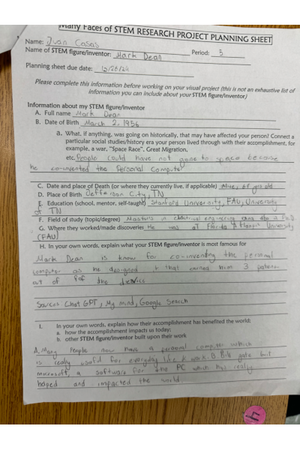 Many Faces of STEM RESEARCH PROJECT PLANNING SHEET
Name:
Period: 5
Name of STEM figure/inventor: Mark Dean
Planning sheet due date:
Please complete this information before working on your visual project (this is not an exhaustive list of
information you can include about your STEM figure/inventor)
Information about my STEM figure/inventor
A. Full name Mark Dean
B. Date of Birth March 2, 1956
a. What, if anything, was going on historically, that may have affected your person? Connect a
particular social studies/history era your person lived through with their accomplishment, for
example, a war, "Space Race", Great Migration,
etc. People could have not gone to space because
he co-invented the Personal Computer
C. Date and place of Death (or where they currently live, if applicable)
D. Place of Birth Jefferson City, TN
E. Education (school, mentor, self-taught) Stanford University, FAU, University
of TN
F. Field of study (topic/degree) Masters in
G. Where they worked/made discoveries He was at Florida Atlantic University
(FAU)
H. In your own words, explain what your STEM figure/inventor is most famous for
Mark Dean is known for co-inventing the personal
computer
out of the device
Sources: Chat GPT, My mind, Google Search
I. In your own words, explain how their accomplishment has benefited the world.
a. how the accomplishment impacts us today:
b. other STEM figure/inventor built upon their work
A. Many People now have a personal computer which
is really useful for everyday like work.
microsoft a software for the PC which has really
helped and impacted the world